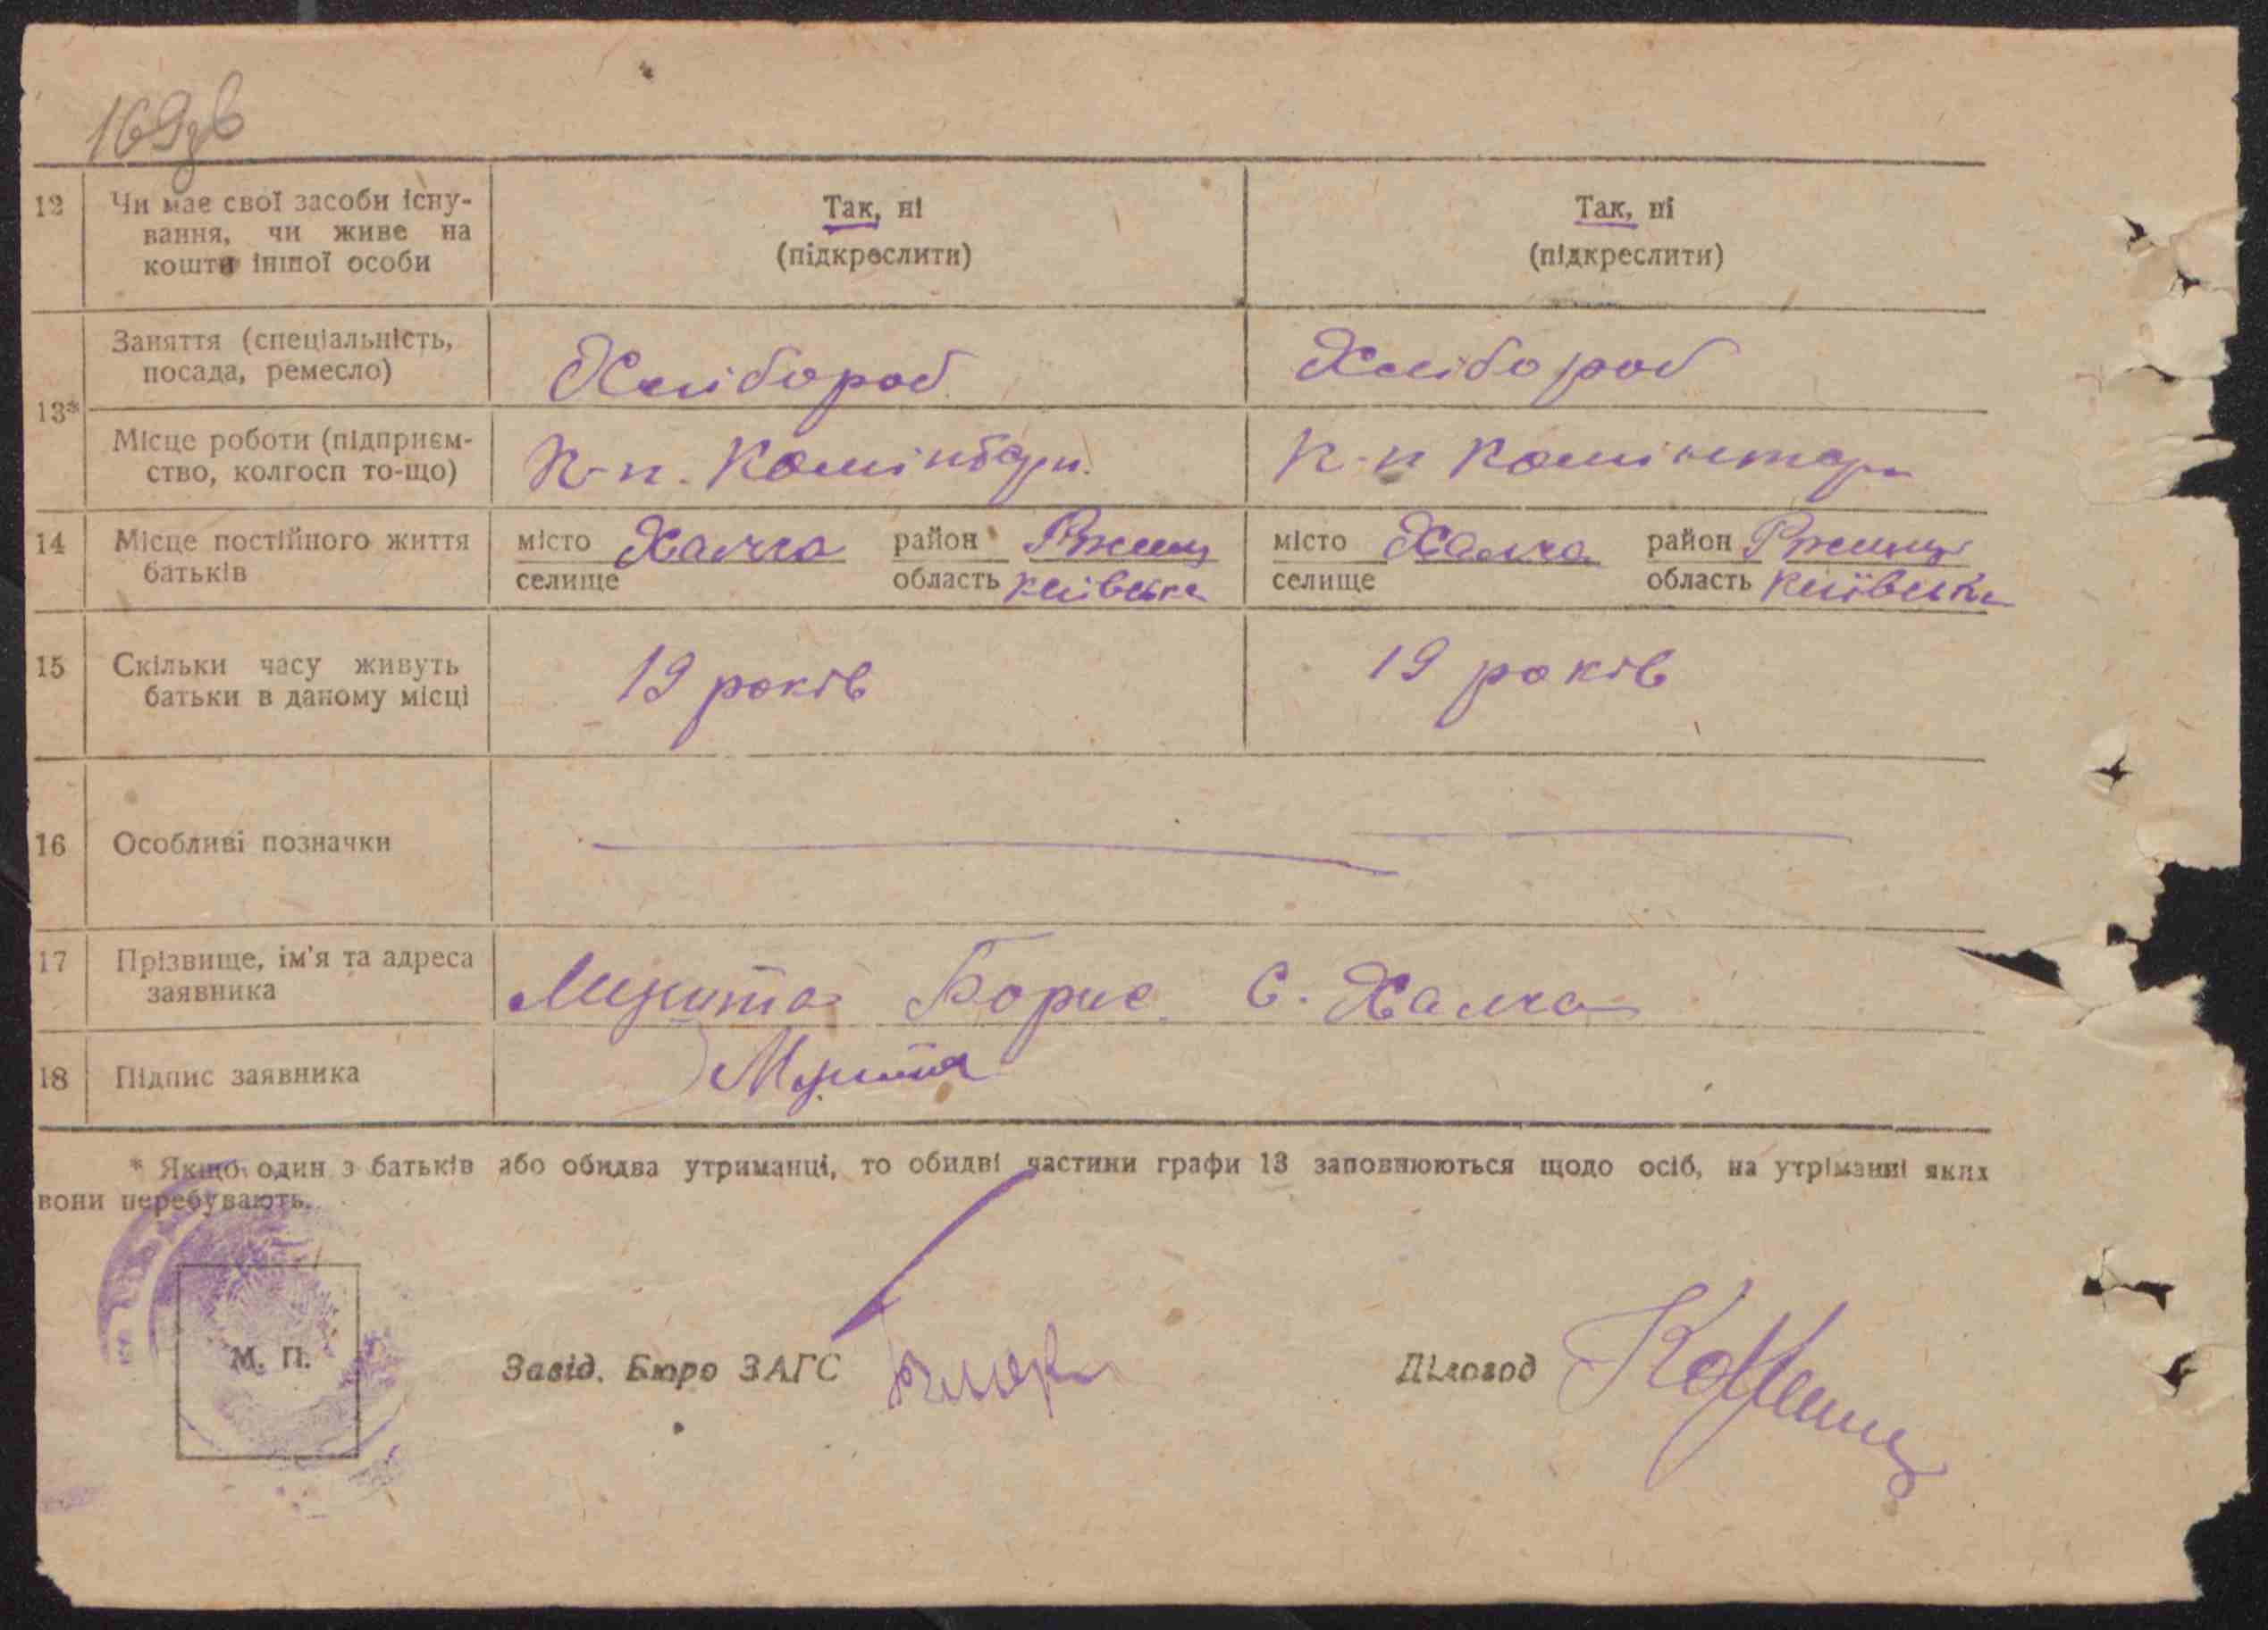 169зв
12 Чи має свої засоби існу-
вання, чи живе на
кошти іншої особи
Так, ні
(підкреслити)
Так, ні
(підкреслити)
13*
Заняття (спеціальність,
посада, ремесло)
Хлібороб
Хлібороб
Місце роботи (підприєм-
ство, колгосп то-що)
К-п. Комінтерн.
К-п Комінтерн
14 Місце постійного життя
батьків
місто Халча район Ржищ
селище область Київська
місто Халча район Ржищ
селище область Київська
15 Скільки часу живуть
батьки в даному місці
19 років
19 років
16 Особливі позначки
17 Прізвище, ім'я та адреса
заявника
Микита Борис. С. Халча
18 Підпис заявника
Микита
* Якщо один з батьків або обидва утриманці, то обидві частини графи 13 заповнюються щодо осіб, на утріманні яких
вони перебувають.
М. П.
Завід. Бюро ЗАГС
Діловод